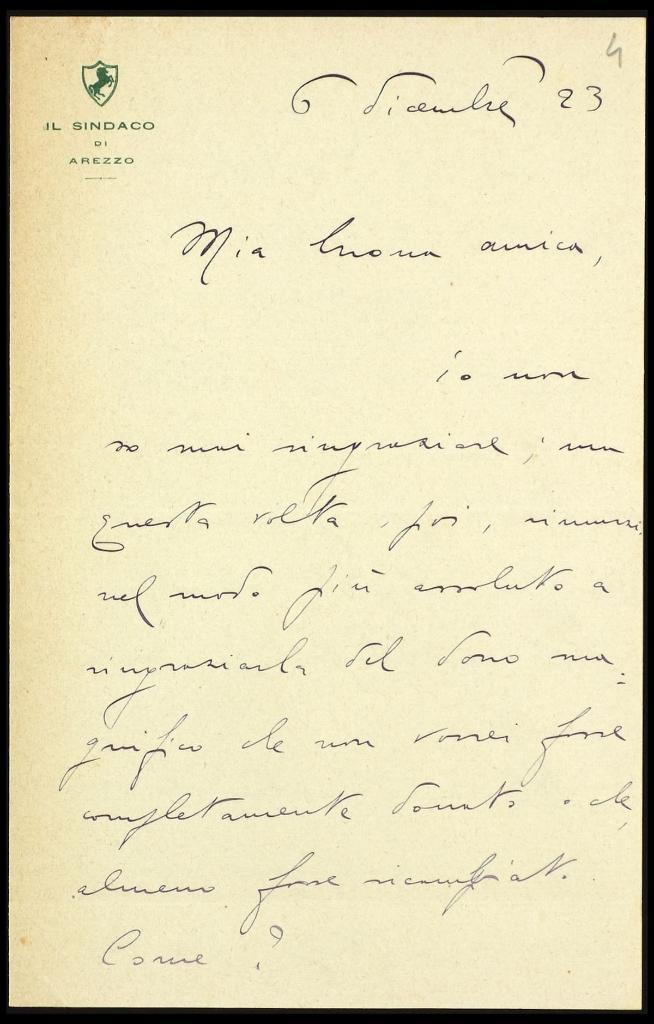 4
6 dicembre 23
IL SINDACO
DI
AREZZO
Mia buona amica,
io non
so mai ringraziare; ma
questa volta, poi, rinunzio
nel modo più assoluto a
ringraziarla del dono ma-
gnifico che non vorrei fosse
completamente donato o che,
almeno fosse ricambiato.
Come?